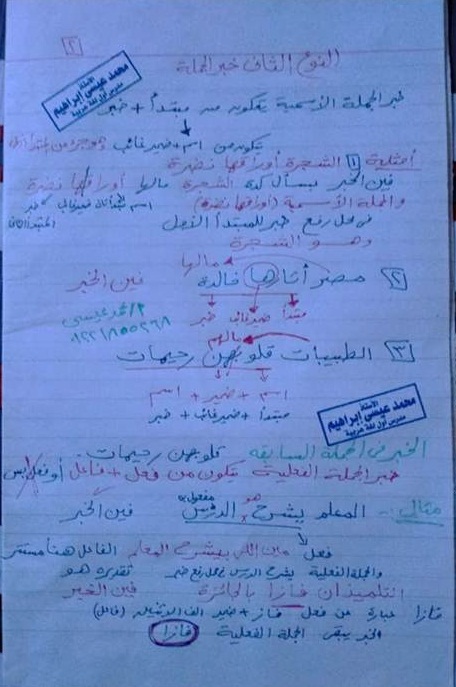 [٢]
النوع الثانى خبر الجملة
الأستاذ
محمد عيسى إبراهيم
مدرس أول لغة عربية
خبر الجملة الأسمية يتكون من مبتدأ + خبر
يتكون من اسم + ضمير غائب
أمثلية ١ الشجرة أوراقها نضرة
فين الخبر بسأل كده الشجرة مالها أوراقها نضرة
والجملة الأسمية (أوراقها نضرة)
فى محل رفع خبر للمبتدأ الأول
وهو الشجرة
مالها
٢ مصر أثارها خالدة فين الخبر
مبتدأ ضمير غائب خبر
أ/ محمد عيسى
مالهم
٣ الطبيبات قلوبهن رحيمات
اسم + ضمير + اسم
مبتدأ + ضمير غائب + خبر
الأستاذ
محمد عيسى إبراهيم
مدرس أول لغة عربية
الخبر فى الجملة السابقة قلوبهن رحيمات.
خبر الجملة الفعلية يتكون من فعل + فاعل أو فعل
مثال :- المعلم يشرح الدرس فين الخبر
هو
مفعول به
فعل مين اللى بيشرح المعلم الفاعل هنا مستتر
والجملة الفعلية يشرح الدرس فى محل رفع خبر تقديره هو
التلميذان فازا بالجائزة فين الخبر
فازا عبارة عن فعل فاز + ضمير الف الاثنين (فاعل)
الخبر يبقى الجملة الفعلية (فازا)